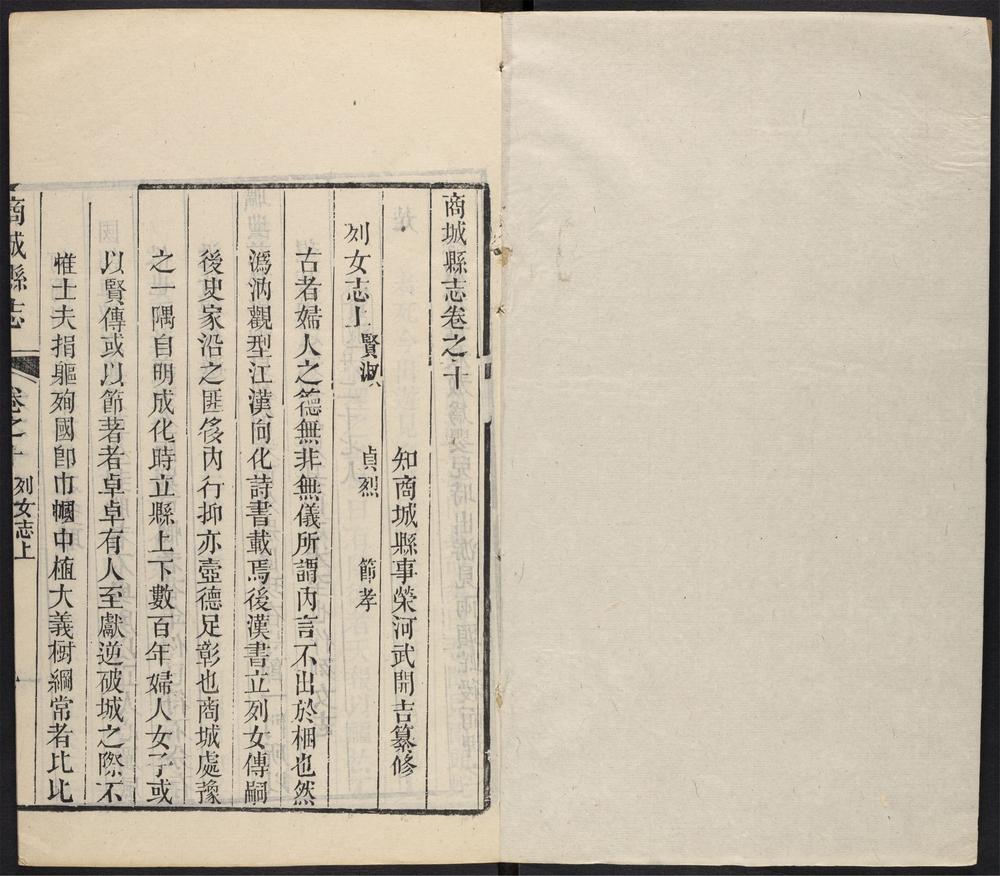 商城縣志卷之十
知商城縣事榮河武開吉纂修
列女志上 賢淑 貞烈 節孝
古者婦人之德無非無儀所謂內言不出於梱也然
溈汭觀型江漢向化詩書載焉後漢書立列女傳嗣
後史家沿之匪侈內行抑亦壼德足彰也商城處豫
之一隅自明成化時立縣上下數百年婦人女子或
以賢傳或以節著者卓卓有人至獻逆破城之際不
惟士夫捐軀殉國卽巾幗中植大義樹綱常者比比
商城縣志 卷之十 列女志上